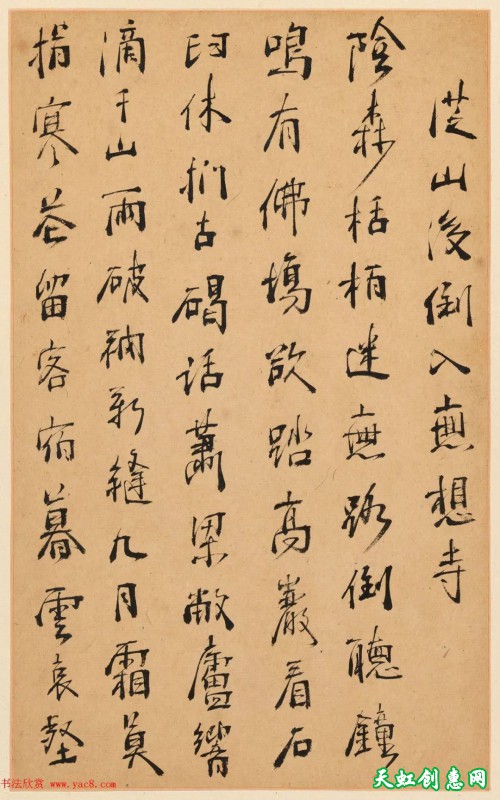 從山後倒入無想寺
陰森栝柏迷無路倒聽鐘
鳴有佛場欲踏高巖看石
臼休捫古碣話蕭梁敝廬響
滴千山雨破衲新縫九月霜莫
指寒花留客宿暮雲哀壑
书法欣赏 www.yac8.com
天虹创惠网